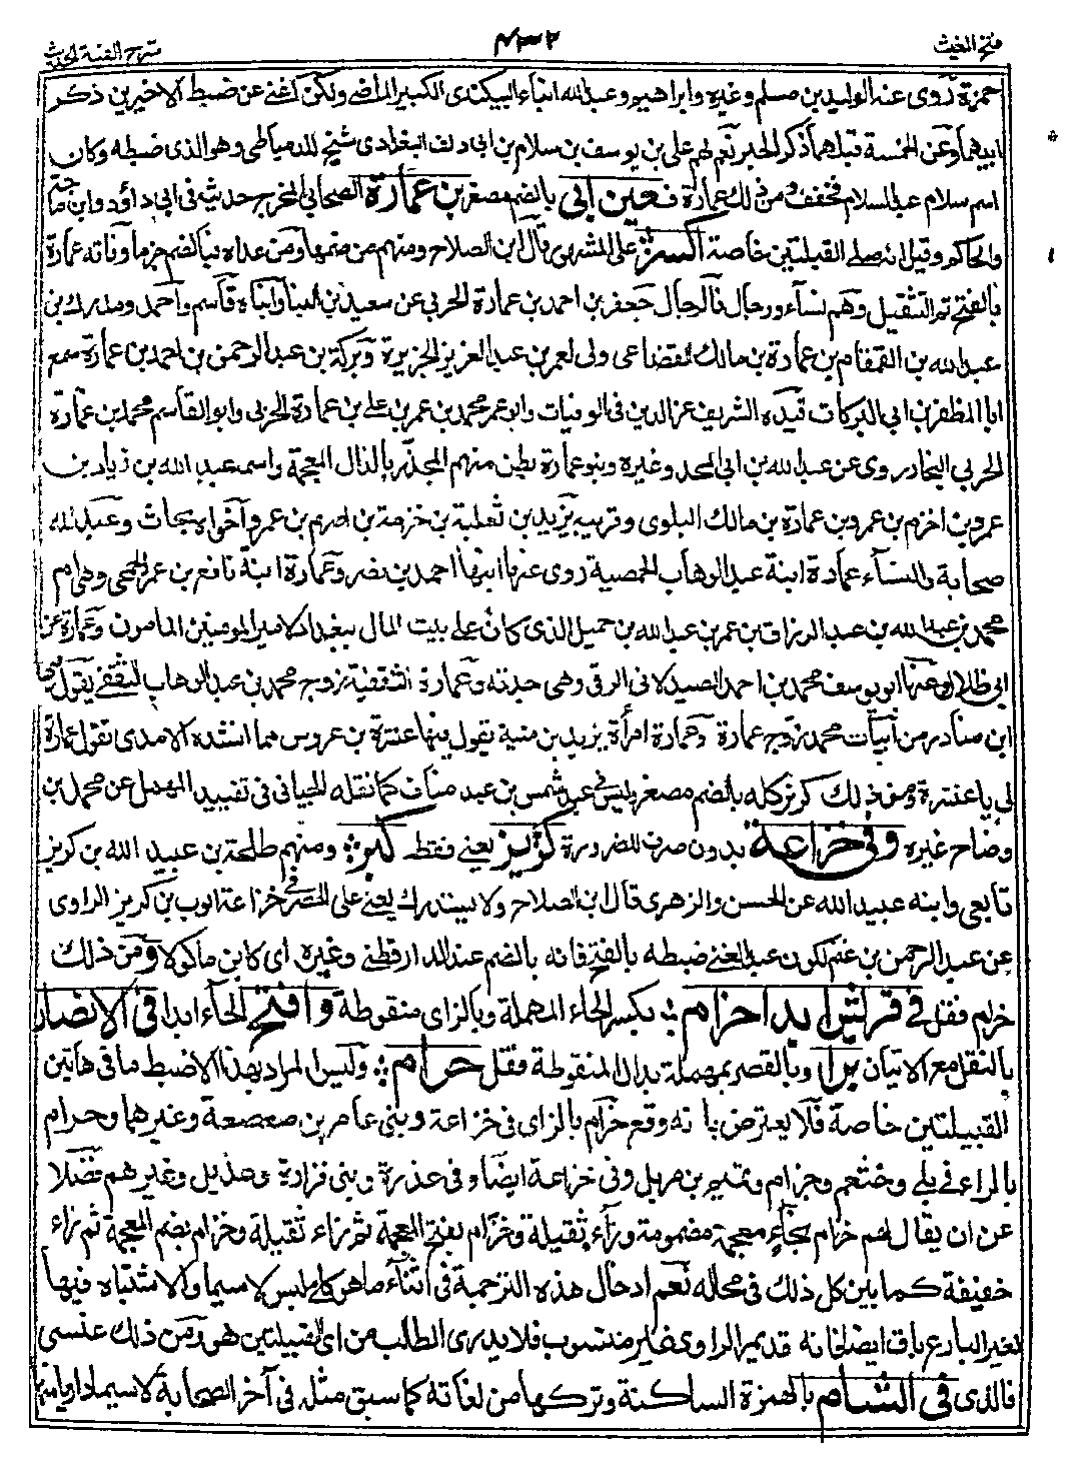 فتح المغيث
٤٣٢
شرح الفية الحديث
حمزة روى عنه الوليد بن مسلم وغيره وابراهيم وعبد الله ابناء البيكندى الكبير الماضى ولكن اغنى عن ضبط الاخيرين ذكر
ابيهما وعن الخمسة قبلهما ذكر الحبر نعم لهم على بن يوسف بن سلام بن ابى دلف البغدادى شيخ للدمياطى وهو الذى ضبطه وكان
اسم سلام عبد السلام فخفف ومن ذلك عمارة فعين ابى بالضم مصغر بن عمارة الصحابى المخرج حديثه فى ابى داؤد وابن ماجة
والحاكم وقيل انه صلى القبلتين خاصة اكسر على المشهور قال ابن الصلاح ومنهم من ضمها ومن عداه فبالضم جزما وفاته عمارة
بالفتح ثم التثقيل وهم نساء ورجال فالرجال جعفر بن احمد بن عمارة الحربى عن سعيد بن البنا وابناه قاسم واحمد ومدرك بن
عبد الله بن القمقام بن عمارة بن مالك القضاعى ولى لعمر بن عبد العزيز الجزيرة وبركة بن عبد الرحمن بن احمد بن عمارة سمع
ابا المظفر بن ابى البركات قيده الشريف عز الدين فى الوفيات وابو عمر محمد بن عمر بن على بن عمارة الحربى وابو القاسم محمد بن عمارة
الحربى النجار روى عن عبد الله بن ابى المجد وغيره وبنو عمارة بطن منهم المجذر بالذال المعجمة واسمه عبد الله بن زياد بن
عمرو بن اخزم بن عمرو بن عمارة بن مالك البلوى وقريبه يزيد بن ثعلبة بن خزمة بن اصرم بن عمرو واخواه بحاث وعبد الله
صحابة والنساء عمارة ابنة عبد الوهاب الحمصية روى عنها ابنها احمد بن نصر وعمارة ابنة نافع بن عمر الجمحى وهى ام
محمد بن عبد الله بن عبد الرزاق بن عمر بن عبد الله بن جميل الذى كان على بيت المال ببغداد لامير المومنين المامون وعمارة عن
ابى ظلال وعنها ابو يوسف محمد بن احمد الصيدلانى الرقى وهى جدته وعمارة الثقفية زوج محمد بن عبد الوهاب الثقفى يقول فيها
ابن مناذر من ابيات محمد زوج عمارة وعمارة امرأة يزيد بن منية يقول فيها عنترة بن عروس مما انشده الامدى تقول عمارة
لى يا عنترة ومن ذلك كريز كله بالضم مصغر فليس فى عبد شمس بن عبد مناف كما نقله الجيانى فى تقييد المهمل عن محمد بن
وضاح غيره وفى خزاعة بدون صرف للضرورة كريز يعنى فقط كبر ومنهم طلحة بن عبيد الله بن كريز
تابعى وابنه عبيد الله عن الحسن والزهرى قال ابن الصلاح ولا يستدرك يعنى على الحصر فى خزاعة ايوب بن كريز الراوى
عن عبد الرحمن بن غنم لكون عبد الغنى ضبطه بالفتح فانه بالضم عند الدارقطنى وغيره اى كابن ماكولا ومن ذلك
حزام فقل فى قريش ابدا حزام بكسر الحاء المهملة وبالزاى منقوطة وافتح الحاء ابدا فى الانصار
بالنقل مع الاتيان برا وبالقصر بمهملة بدل المنقوطة فقل حرام وليس المراد بهذا الا ضبط ما فى هاتين
القبيلتين خاصة فلا يعترض بانه وقع حزام بالزاى فى خزاعة وبنى عامر بن صعصعة وغيرهما وحرام
بالراء فى بلى وخثعم وجذام وتميم بن مر بل وفى خزاعة ايضا وفى عذرة وبنى فزارة وهذيل وغيرهم فضلا
عن ان يقال لهم خرام بخاء معجمة مضمومة وراء ثقيلة وخزام بفتح المعجمة ثم زاء ثقيلة وخزام بضم المعجمة ثم زاء
خفيفة كما بين كل ذلك فى محاله نعم ادخال هذه الترجمة فى اثناء ما هو كلى ملبس لا سيما والاشتباه فيها
لغير البارع باق ايضا فانه قد يمر الراوى غير منسوب فلا يدرى الطالب من اى القبيلتين هو ومن ذلك عنسى
فالذى فى الشام بالهمزة الساكنة وتركها من لغاته كما سبق مثله فى آخر الصحابة لا سيما داريا منها